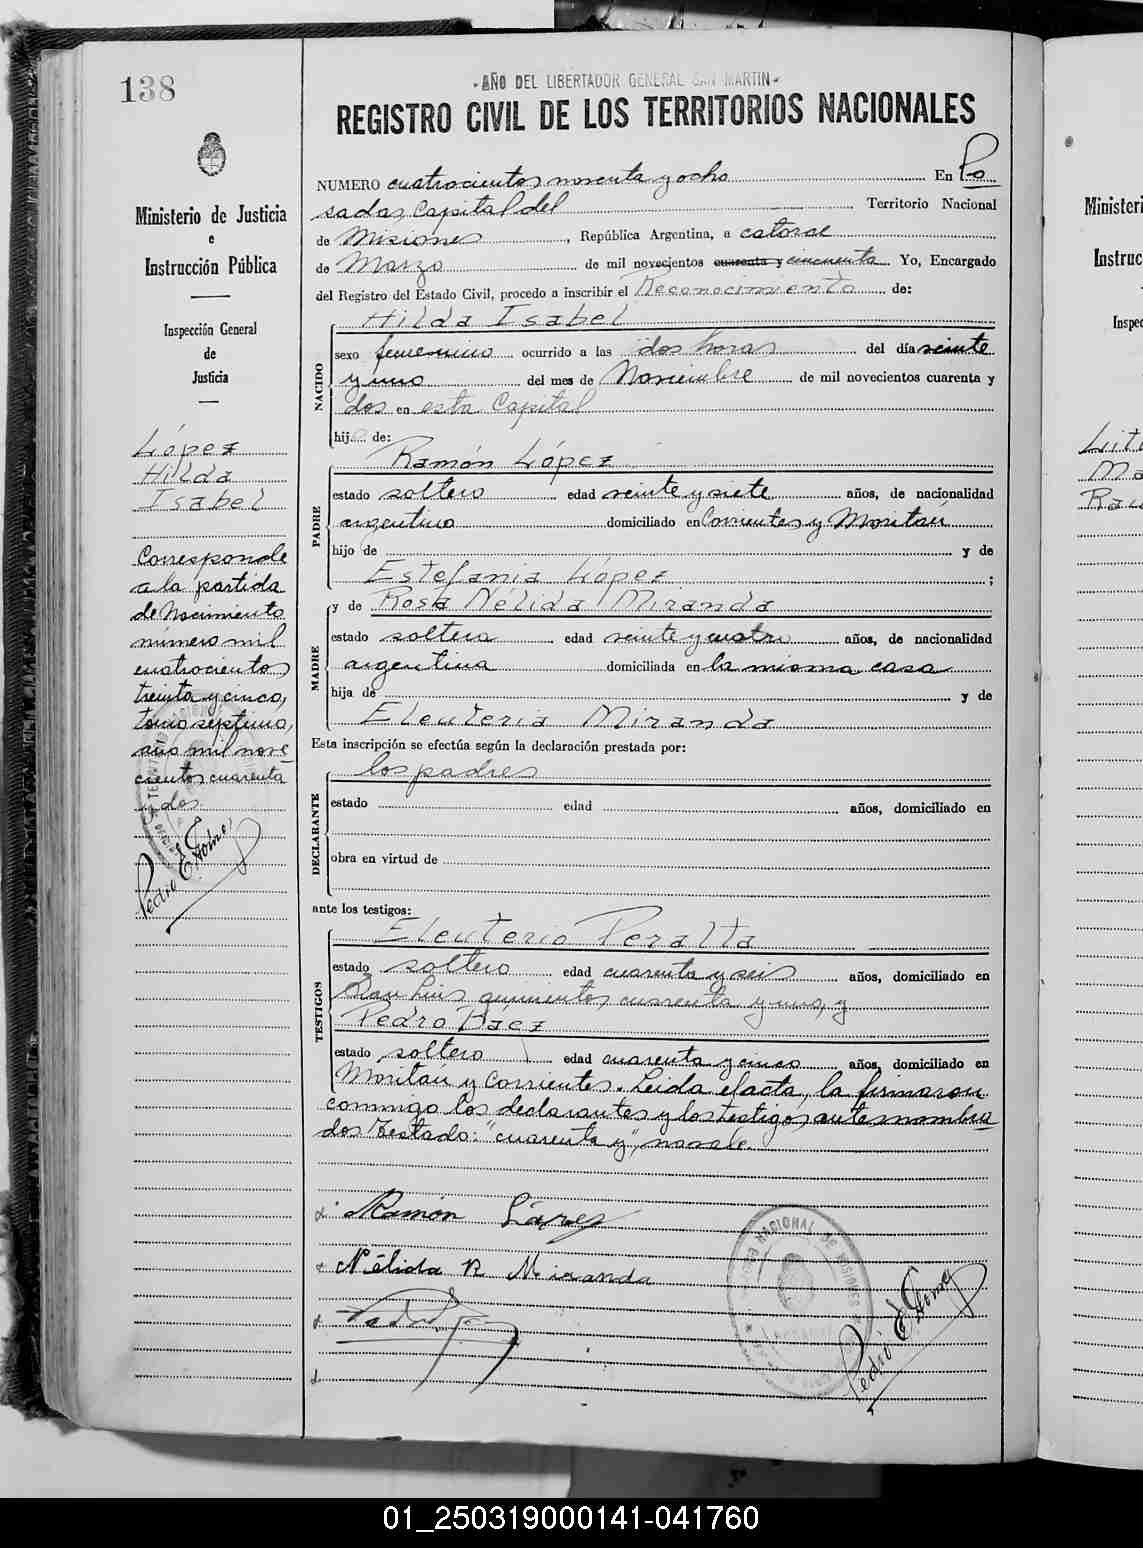 138
Ministerio de Justicia
e
Instrucción Pública
Inspección General
de
Justicia
López
Hilda
Isabel
Corresponde
a la partida
de Nacimiento
número mil
cuatrocientos
treinta y cinco,
tomo septimo,
año mil nove
cientos cuarenta
y dos
Pedro E. Gomez
- AÑO DEL LIBERTADOR GENERAL SAN MARTIN -
REGISTRO CIVIL DE LOS TERRITORIOS NACIONALES
NUMERO cuatrocientos noventa y ocho En Po
sadas, Capital del Territorio Nacional
de Misiones, República Argentina, a catorce
de Marzo de mil novecientos cuarenta y cincuenta Yo, Encargado
del Registro del Estado Civil, procedo a inscribir el Reconocimiento de:
Hilda Isabel
NACIDO
sexo femenino ocurrido a las dos horas del día veinte
y uno del mes de Noviembre de mil novecientos cuarenta y
dos en esta Capital
hij de:
Ramón López
PADRE
estado soltero edad veinte y siete años, de nacionalidad
argentino domiciliado en Corrientes y Moritán
hijo de y de
Estefania López ;
y de Rosa Nélida Miranda
MADRE
estado soltera edad veinte y cuatro años, de nacionalidad
argentina domiciliada en la misma casa
hija de y de
Eleuteria Miranda
Esta inscripción se efectúa según la declaración prestada por:
los padres
DECLARANTE
estado edad años, domiciliado en
obra en virtud de
ante los testigos:
Eleuterio Peralta
TESTIGOS
estado soltero edad cuarenta y seis años, domiciliado en
San Luis quinientos cuarenta y uno, y
Pedro Báez
estado soltero edad cuarenta y cinco años, domiciliado en
Moritán y Corrientes. Leida el acta, la firmaron
conmigo los declarantes y los testigos ante nombra
dos Testado: "cuarenta y", no vale.
Ramón López
Nélida R Miranda
Pedro E. Gomez
Ministeri
Instruc
Inspec
Ma
01_250319000141-041760